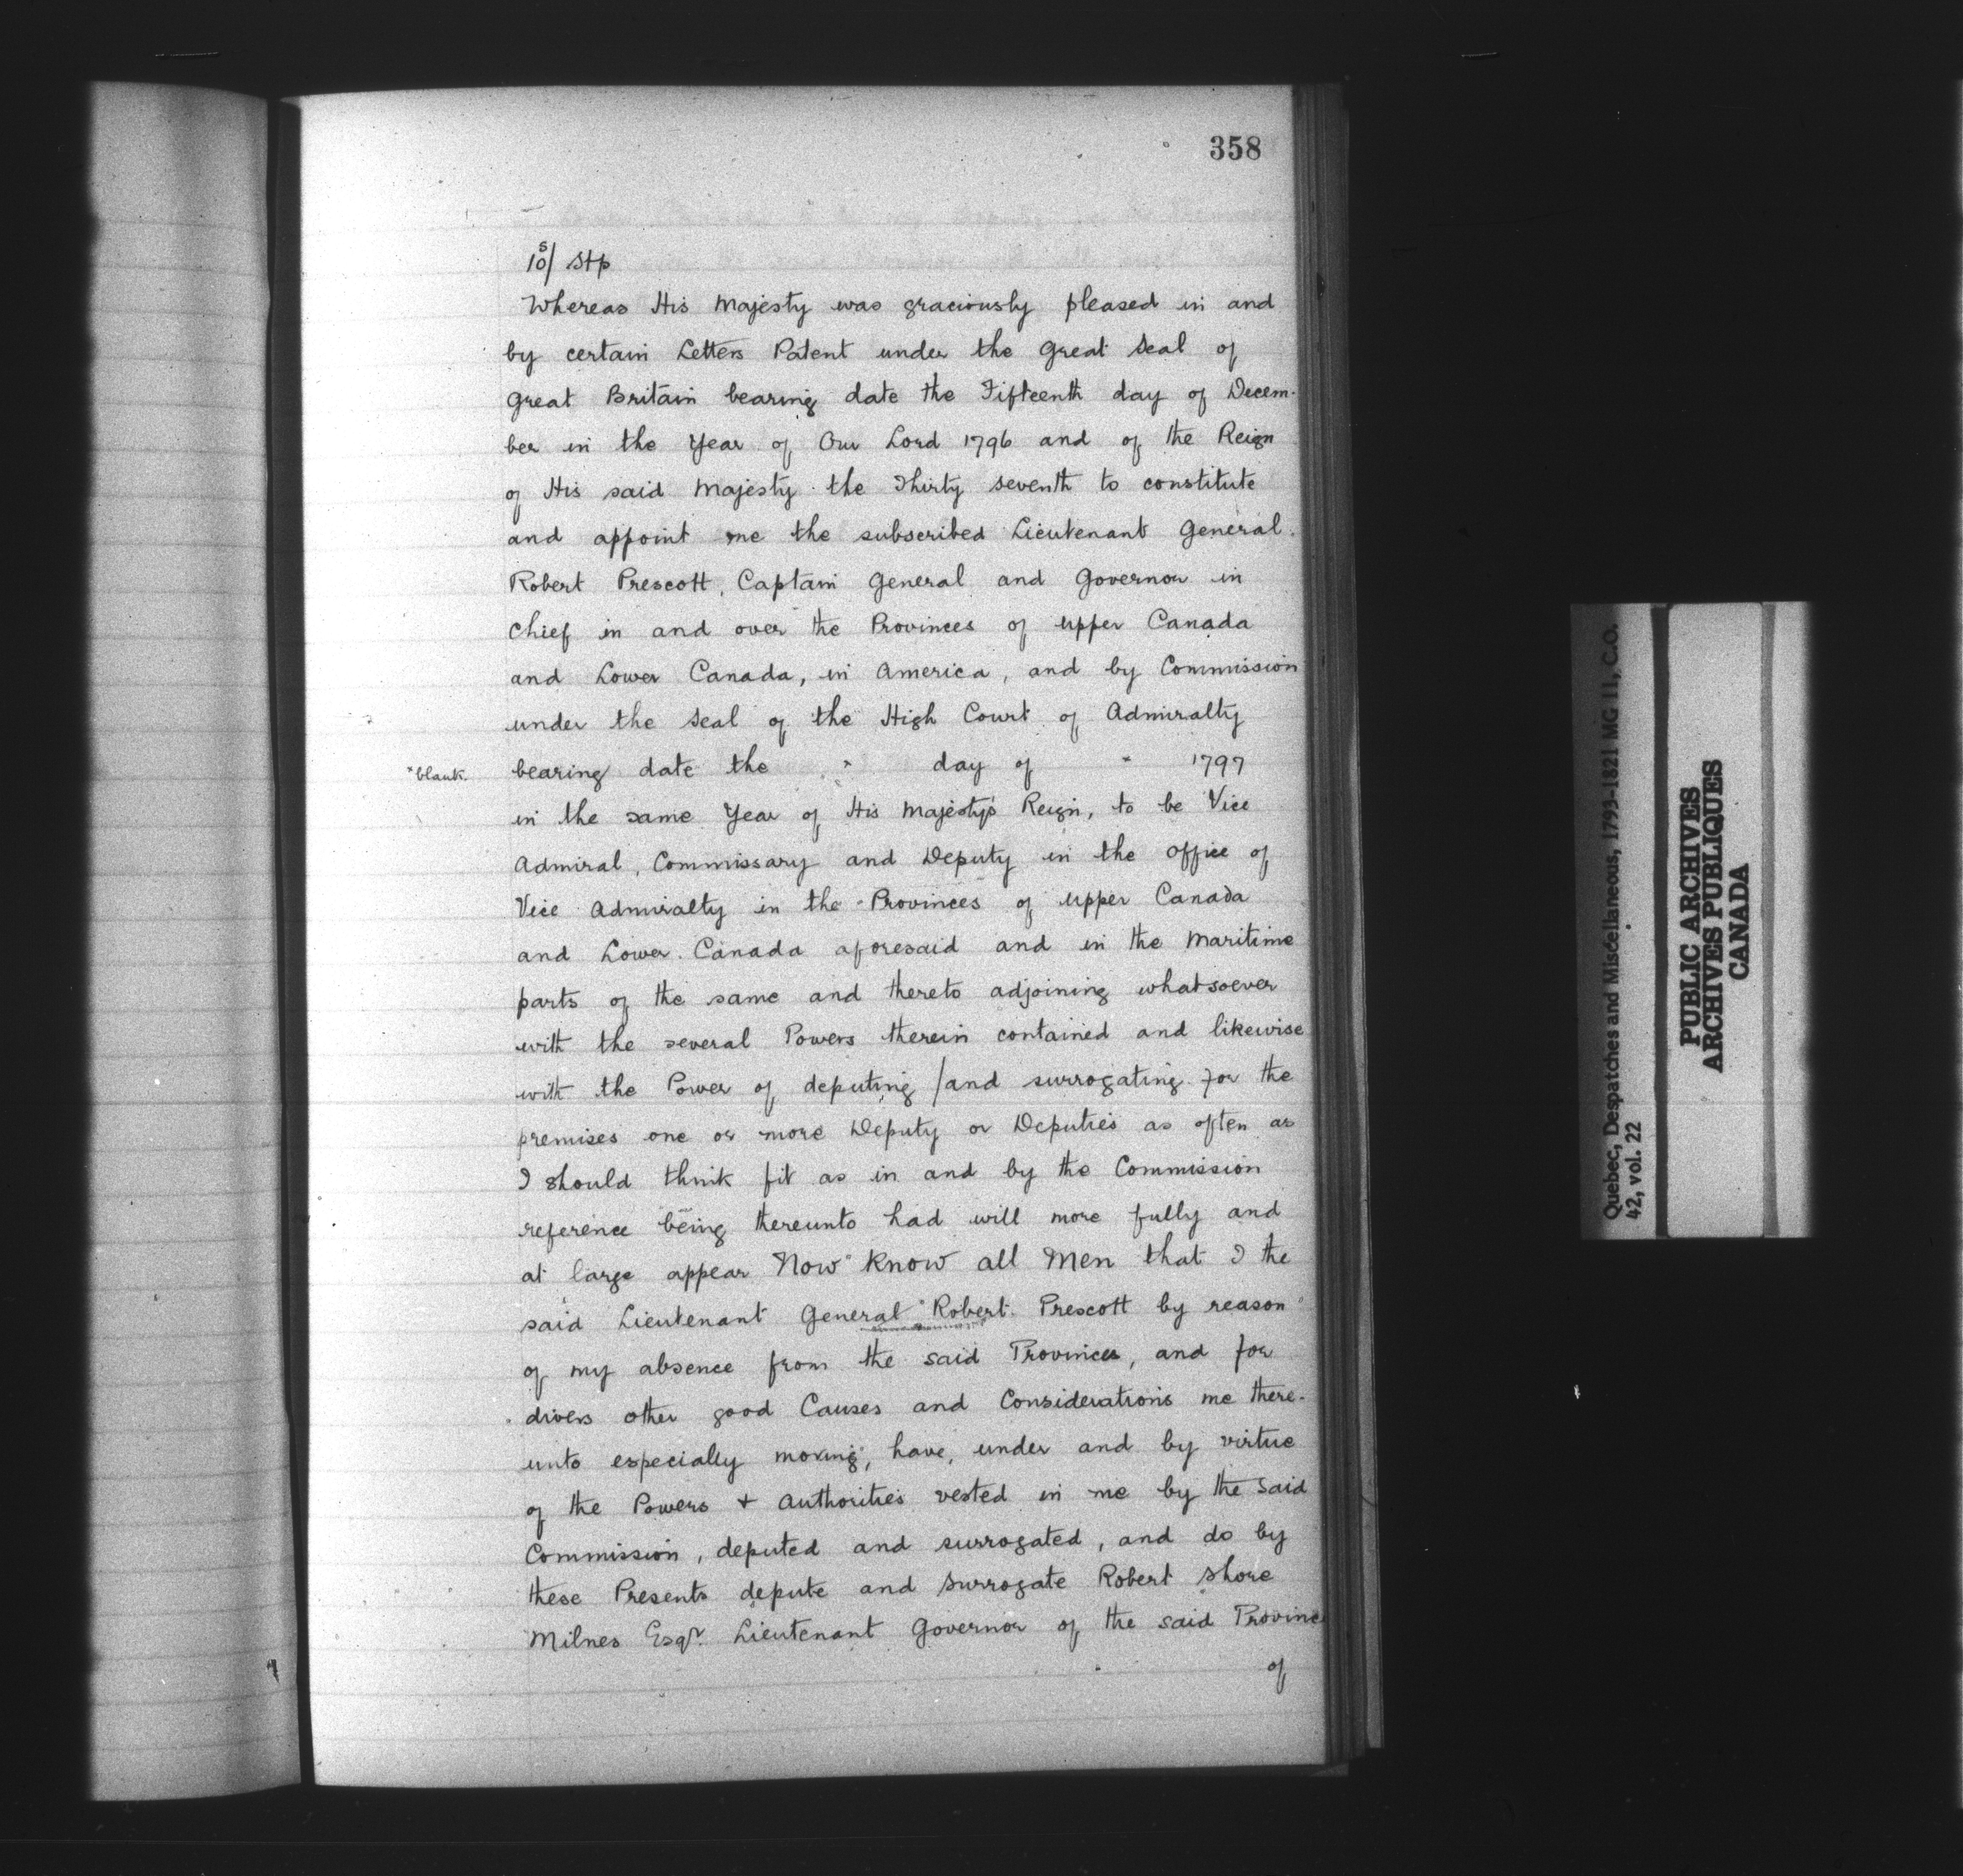 358
10s/ Stp
Whereas His Majesty was graciously pleased in and
by certain Letters Patent under the Great Seal of
Great Britain bearing date the Fifteenth day of Decem-
ber in the Year of Our Lord 1796 and of the Reign
of His said Majesty the Thirty seventh to constitute
and appoint me the subscribed Lieutenant General
Robert Prescott, Captain General and Governor in
Chief in and over the Provinces of Upper Canada
and Lower Canada, in America, and by Commission
under the Seal of the High Court of Admiralty
*blank. bearing date the * day of * 1797
in the same Year of His Majesty's Reign, to be Vice
Admiral, Commissary and Deputy in the Office of
Vice Admiralty in the Provinces of Upper Canada
and Lower Canada aforesaid and in the Maritime
parts of the same and thereto adjoining whatsoever
with the several Powers therein contained and likewise
with the Power of deputing / and surrogating for the
premises one or more Deputy or Deputies as often as
I should think fit as in and by the Commission
reference being thereunto had will more fully and
at large appear Now Know all Men that I the
said Lieutenant General Robert Prescott by reason
of my absence from the said Provinces, and for
divers other good Causes and Considerations me there-
unto especially moving, have, under and by virtue
of the Powers + Authorities vested in me by the said
Commission, deputed and surrogated, and do by
these Presents depute and Surrogate Robert Shore
Milnes Esqr. Lieutenant Governor of the said Province
of
Quebec, Despatches and Miscellaneous, 1793-1821 MG 11, C.O.
42, vol. 22
PUBLIC ARCHIVES
ARCHIVES PUBLIQUES
CANADA